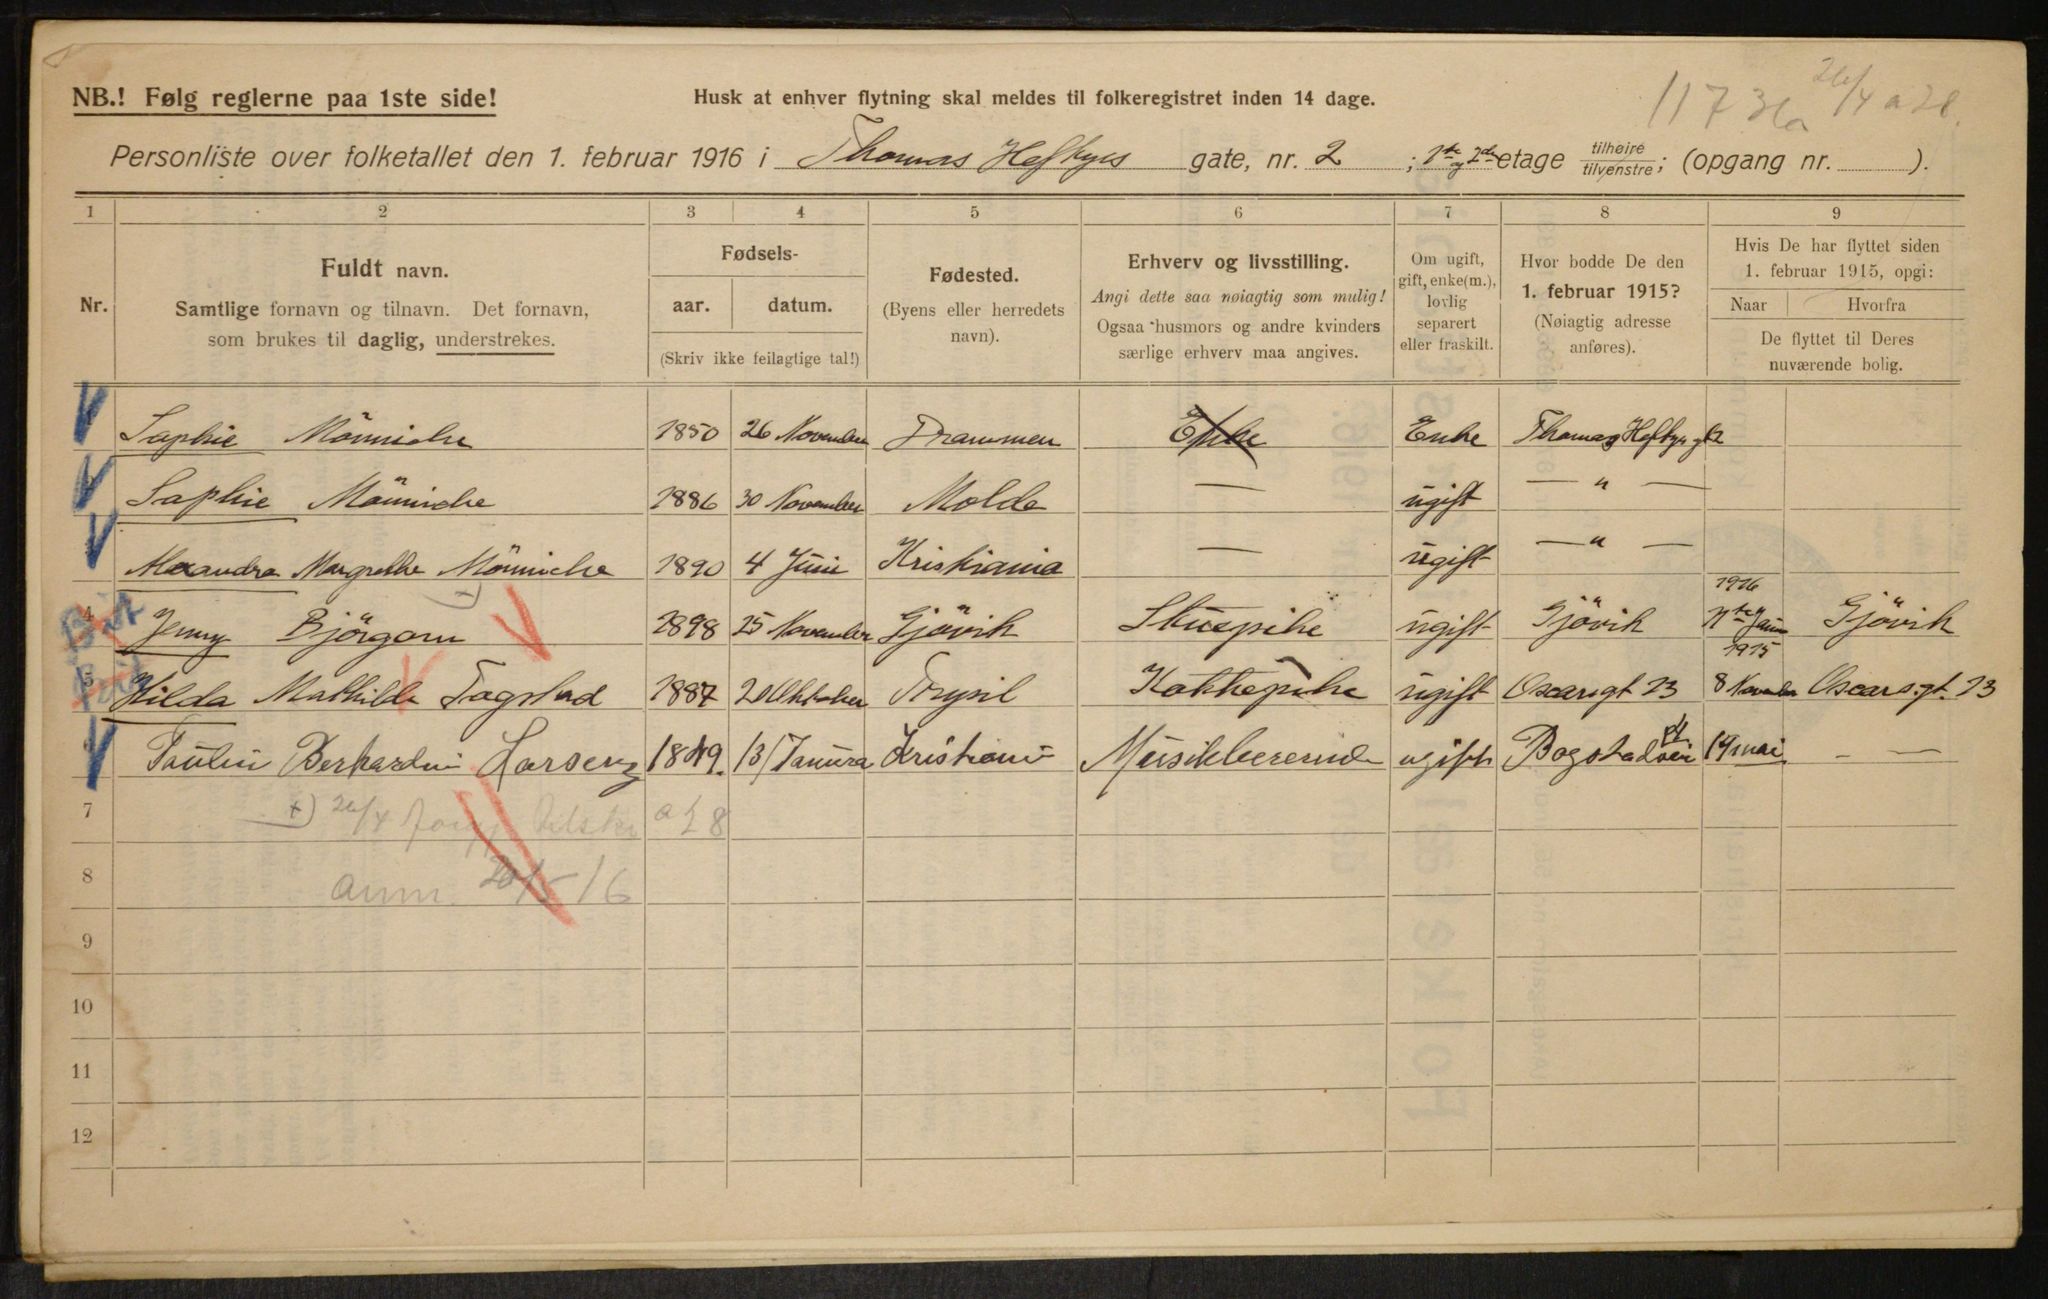 NB.! Følg reglerne paa 1ste side!
Husk at enhver flytning skal meldes til folkeregistret inden 14 dage.
26/4 a 28.
Personliste over folketallet den 1. februar 1916 i Thomas Heftyes gate, nr. 2 ; 1ste og 2den etage tilhøire tilvenstre; (opgang nr. ).
1 2 3 4 5 6 7 8 9
Nr.
Fuldt navn.
Samtlige fornavn og tilnavn. Det fornavn,
som brukes til daglig, understrekes.
Fødsels-
aar. datum.
(Skriv ikke feilagtige tal!)
Fødested.
(Byens eller herredets
navn).
Erhverv og livsstilling.
Angi dette saa nøiagtig som mulig!
Ogsaa husmors og andre kvinders
særlige erhverv maa angives.
Om ugift,
gift, enke(m.),
lovlig
separert
eller fraskilt.
Hvor bodde De den
1. februar 1915?
(Nøiagtig adresse
anføres).
Hvis De har flyttet siden
1. februar 1915, opgi:
Naar Hvorfra
De flyttet til Deres
nuværende bolig.
Sophie Mönniche 1850 26 November Drammen Enke Enke Thomas Heftyes gt 2
Sophie Mönniche 1886 30 November Molde — ugift — " —
Alexandra Margrethe Mönniche 1890 4 Juni Kristiania — ugift — " —
4 Jenny Björgom 1898 25 November Gjövik Stuepike ugift Gjövik 1916 Janu Gjövik
5 Hilda Mathilde Fagstad 1887 20 Oktober Trysil Kokkepike ugift Oscarsgt 23 1915 8 November Oscarsgt. 23
6 Paulin Berhardin Larsen 1849. 13/ Janura Kristiani Musiklærerind ugift Bogstadvei 19 mai — —
7 +) 26/4 a 28
8 anm. 26/5 16
9
10
11
12